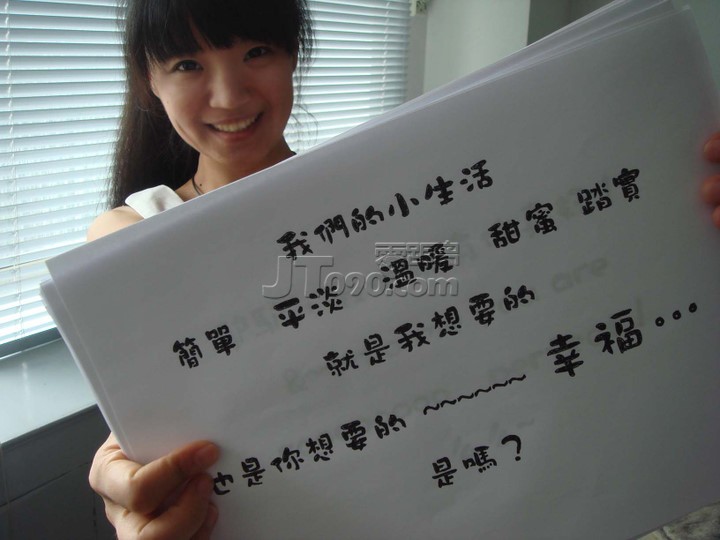 我們的小生活
簡單 平淡 溫暖 甜蜜 踏實
就是我想要的
也是你想要的~~~~~~幸福...
是嗎？
JT090.com